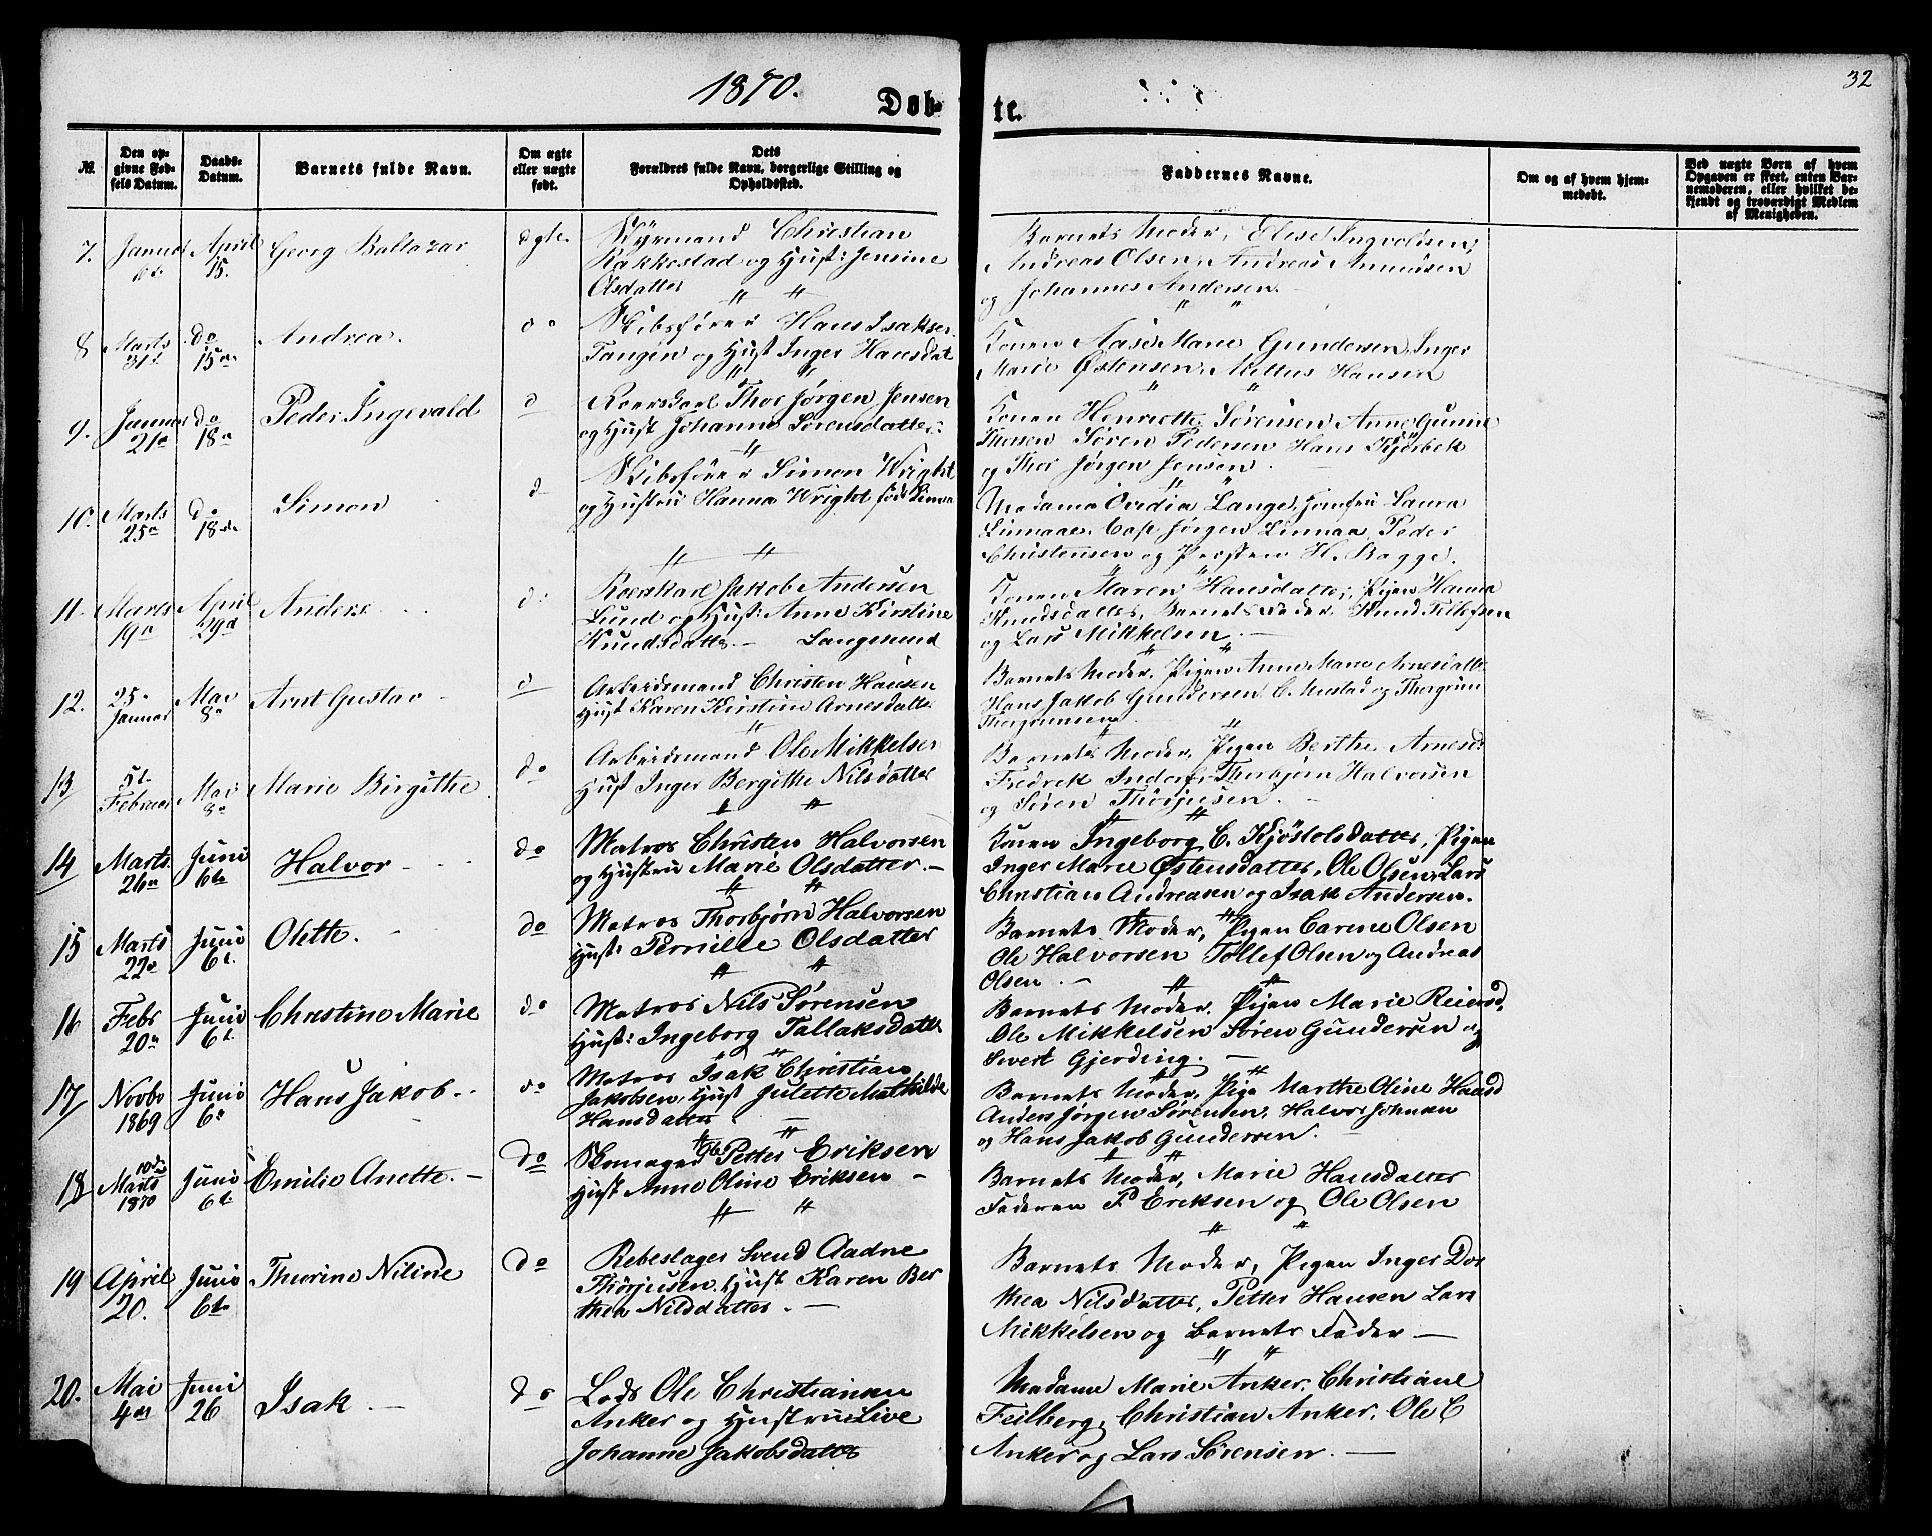 1870.
32
Døb-
te.
№.
Den op-
givne Fød-
sels Datum.
Daabs-
Datum.
Barnets fulde Navn.
Om ægte
eller uægte
født.
Dets
Forældres fulde Navn, borgerlige Stilling og
Opholdssted.
Faddernes Navne.
Om og af hvem hjem-
medøbt.
Ved uægte Børn af hvem
Opgaven er skeet, enten Bar-
nemoderen, eller hvilket be-
kjendt og troværdigt Medlem
af Menigheden.
7. Januar April Georg Baltazar ægte Styrmand Christian
15. Rakkestad og Hust: Jensine
Olsdatter
Barnets Moder, Elise Ingvoldsen,
Andreas Olsen, Andreas
og Johannes Andersen.
8 Marts do Andrea. do Skibsfører Hans Isaksen
31t 15de Tangen og Hust Inger Hansdat
Konen Aase Marie Gundersen, Inger
Marie Østensen, Mettus Hansen
9. Januar do Peder Ingevald d Roerskarl Thor Jørgen Jensen
21a 18a og Hust Johanne Sørensdatter.
Konen Henriette Sørensen Anne Gunine
Thorsen Søren Pedersen Hans Kjørbek
og Thor Jørgen Jensen
10. Marts do Simon d Skibsfører Simon Wright
25a 18de og Hustru Hanna Wright født Linaa
Madama Ovidia Lange, Jomfru Laura
Linnaae, Cap. Jørgen Linnaa Peder
Christensen og Presten H. Bagge.
11. Marts April Anders d: Roerskarl Jakob Andersen
19a 29d Lund og Hust: Anne Kirstine
Knudsdatter - Langesund
Konen Maren Hansdatter, Pigen Hanna
Knudsdatter, Barnets Fader Knud Tellefsen
og Lars Mikkelsen.
12. 25a Mai Arnt Gustav d Arbeidsmand Christen Hansen
Januar 8a Hust Karen Kirstine Arnesdatter
Barnets Moder, Pigen Anne Marie Arnesdatter
Hans Jakob Gundersen C. Mustad og Thorgrim
Thorgrimsen
13 5t Mai Marie Birgithe do Arbeidsmand Ole Mikkelsen
Februar 8a Hust Inger Bergithe Nilsdatter
Barnets Moder, Pigen Berthe Arnesd:
Fredrek Indor, Thorbjørn Halvorsen
og Søren Thorjusen.
14 Marts Juni Halvor do Matros Christen Halvorsen
26a 6te og Hustru Marie Olsdatter.-
Konen Ingeborg C. Kjøstolsdatter, Pigen
Inger Marie Østensdatter, Ole Olsen, Lars
Christian Andreasen og Isak Andersen.
15 Marts Juni Olette. do Matros Thorbjørn Halvorsen
22a 6t. Hust: Pernille Olsdatter
Barnets Moder, Pigen Carine Olsen
Ole Halvorsen Tollef Olsen og Andreas
Olsen.-
16 Febr Juni Christine Marie do Matros Nils Sørensen
20a 6t. Hust: Ingeborg Tallaksdatter
Barnets Moder, Pigen Marie Reiersd.
Ole Mikkelsen Søren Gundersen og
Sivert Gjerding.-
17 Novbr Juni Hans Jakob do Matros Isak Christian
1869 6t Jakobsen, Hust Julette Mathilde
Hansdatter
Barnets Moder, Pige Marthe Oline Haasd
Anders Jørgen Sørensen, Halvor Johnsen
og Hans Jakob Gundersen.
18 10de Marts Juni Emilie Anette.- do Skomager Petter Eriksen
1870 6t Hust Anne Oline Eriksen -
Barnets Moder, Marie Hansdatter
Faderen P Eriksen og Ole Olsen
19 April Juni Thorine Niline do Rebslager Svend Aadne
20. 6te Thorjusen, Hust Karen Ber
thea Nilsdatter.-
Barnets Moder, Pigen Inger Dor
thea Nilsdatter, Petter Hansen Lars
Mikkelsen og Barnets Fader -
20. Mai Juni Isak - do Lods Ole Christiansen
4de 26 Anker og Hustru Live
Johanne Jakobsdatter
Madame Marie Anker, Christiane
Feilberg, Christian Anker, Ole C
Anker og Lars Sørensen.-